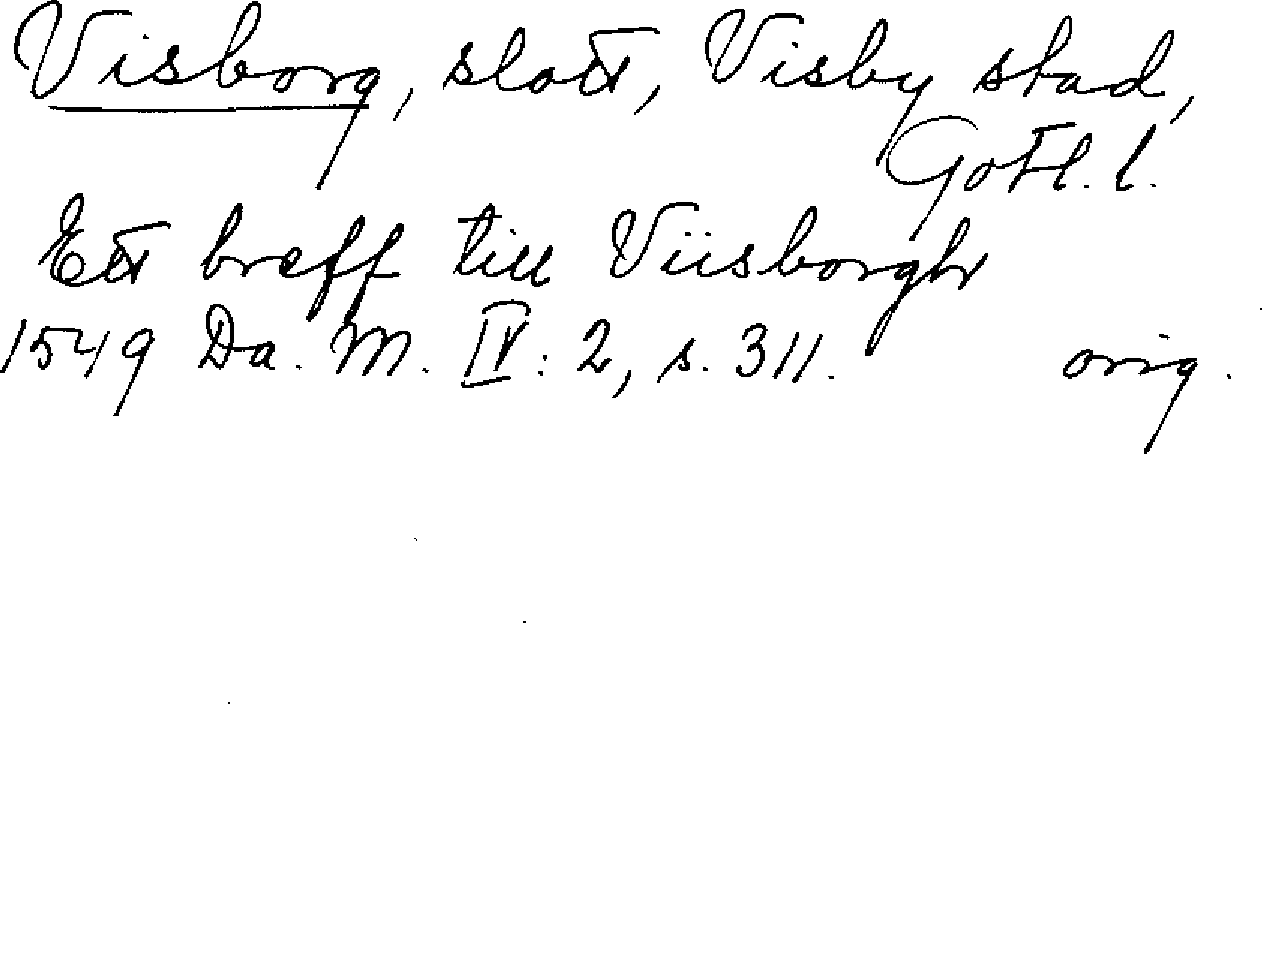 Visborg, slott, Visby stad,
Gotl. l.
Ett breff till Viisborgh
1549 Da. M. IV: 2, s. 311. orig.